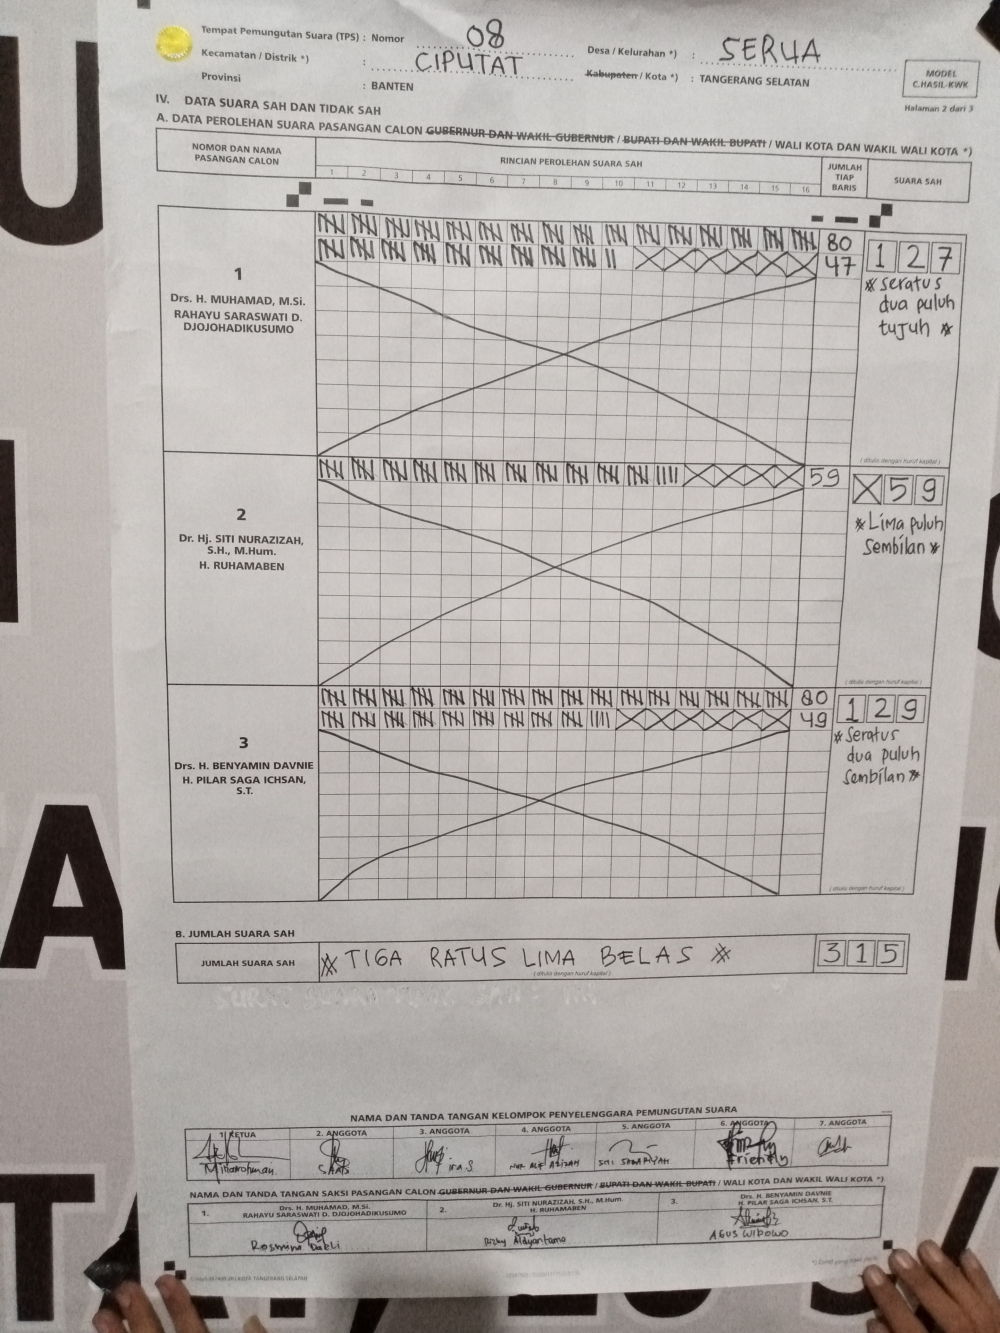 Tempat Pemungutan Suara (TPS) : Nomor 08 Desa / Kelurahan *) : SERUA
Kecamatan / Distrik *) : CIPUTAT Kabupaten / Kota *) : TANGERANG SELATAN
Provinsi : BANTEN
MODEL
C.HASIL-KWK
Halaman 2 dari 3
IV. DATA SUARA SAH DAN TIDAK SAH
A. DATA PEROLEHAN SUARA PASANGAN CALON GUBERNUR DAN WAKIL GUBERNUR / BUPATI DAN WAKIL BUPATI / WALI KOTA DAN WAKIL WALI KOTA *)
NOMOR DAN NAMA
PASANGAN CALON
RINCIAN PEROLEHAN SUARA SAH
JUMLAH
TIAP
BARIS
SUARA SAH
1 2 3 4 5 6 7 8 9 10 11 12 13 14 15 16
1
Drs. H. MUHAMAD, M.Si.
RAHAYU SARASWATI D.
DJOJOHADIKUSUMO
80
47
127
* seratus
dua puluh
tujuh *
(ditulis dengan huruf kapital)
2
Dr. Hj. SITI NURAZIZAH,
S.H., M.Hum.
H. RUHAMABEN
59
X59
* Lima puluh
Sembilan *
(ditulis dengan huruf kapital)
3
Drs. H. BENYAMIN DAVNIE
H. PILAR SAGA ICHSAN,
S.T.
80
49
129
* Seratus
dua puluh
sembilan *
(ditulis dengan huruf kapital)
B. JUMLAH SUARA SAH
JUMLAH SUARA SAH * TIGA RATUS LIMA BELAS * 315
(ditulis dengan huruf kapital)
NAMA DAN TANDA TANGAN KELOMPOK PENYELENGGARA PEMUNGUTAN SUARA
1. KETUA 2. ANGGOTA 3. ANGGOTA 4. ANGGOTA 5. ANGGOTA 6. ANGGOTA 7. ANGGOTA
Ira S
NAMA DAN TANDA TANGAN SAKSI PASANGAN CALON GUBERNUR DAN WAKIL GUBERNUR / BUPATI DAN WAKIL BUPATI / WALI KOTA DAN WAKIL WALI KOTA *)
1. Drs. H. MUHAMAD, M.Si.
RAHAYU SARASWATI D. DJOJOHADIKUSUMO
2. Dr. Hj. SITI NURAZIZAH, S.H., M.Hum.
H. RUHAMABEN
3. Drs. H. BENYAMIN DAVNIE
H. PILAR SAGA ICHSAN, S.T.
AGUS WIBOWO